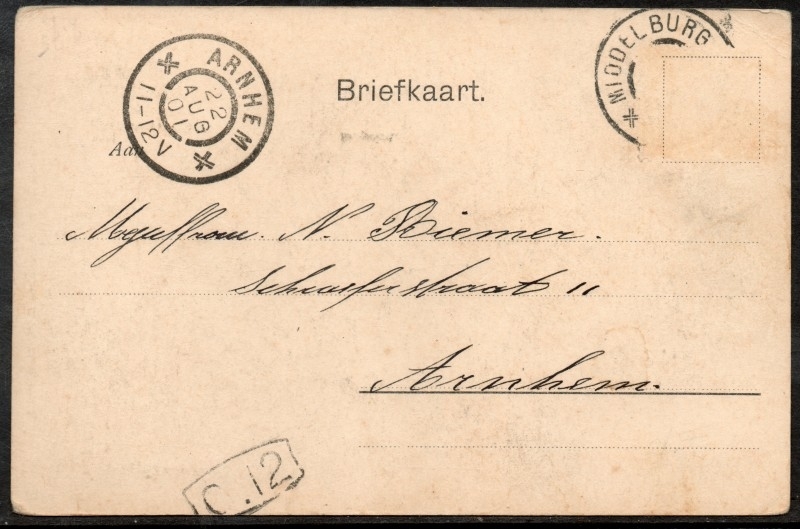 MIDDELBURG
ARNHEM
22
AUG
01
11-12V
Briefkaart.
Aan
Mejuffrouw. N. Riemer.
11
Arnhem.
C.12